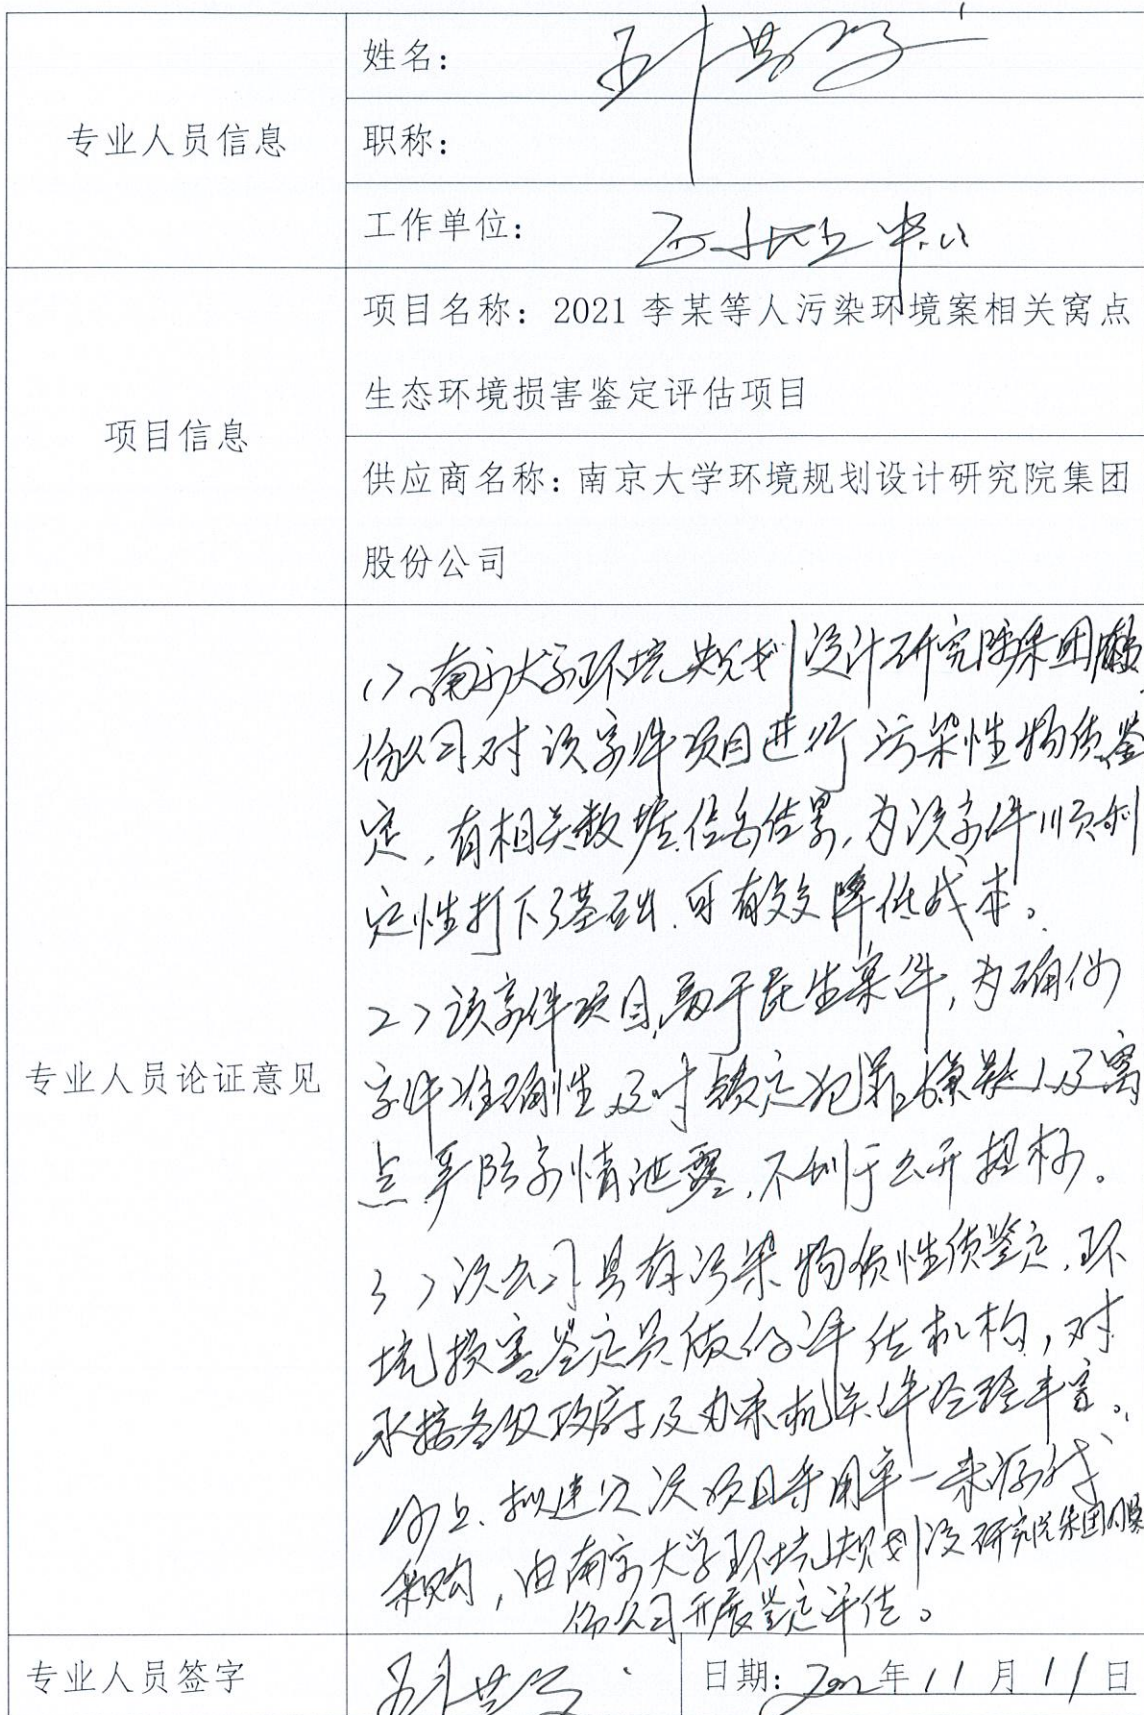 专业人员信息
姓名：
职称：
工作单位：
项目信息
项目名称：2021 李某等人污染环境案相关窝点
生态环境损害鉴定评估项目
供应商名称：南京大学环境规划设计研究院集团
股份公司
专业人员论证意见
1）、南京大学环境规划设计研究院集团股
份公司对该案件项目进行污染性物质鉴
定，有相关数据信息结果，为该案件顺利
定性打下了基础，可有效降低成本。
2）该案件项目属于民生案件，为确保
案件准确性及时锁定犯罪嫌疑人及窝
点 严防案情泄露，不利于公开招标。
3）该公司具有污染物质性质鉴定，环
境损害鉴定 评估机构，对
承接各级政府及办案机关 件经验丰富。
项目采用单一来源
采购，由南京大学环境规划设研究院集团股
份公司开展鉴定评估。
专业人员签字
日期：2022年11月11日